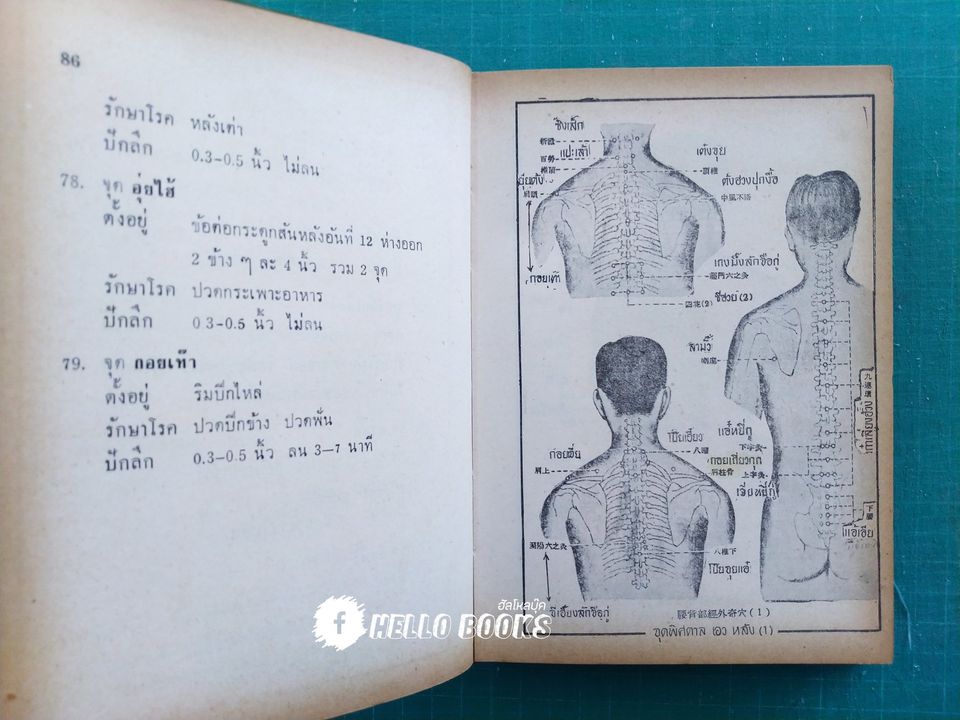 86
รักษาโรค หลังเต่า
ปักลึก 0.3-0.5 นิ้ว ไม่ลน
78. จุด อุ่ยไฮ้
ตั้งอยู่ ข้อต่อกระดูกสันหลังอันที่ 12 ห่างออก
2 ข้าง ๆ ละ 4 นิ้ว รวม 2 จุด
รักษาโรค ปวดกระเพาะอาหาร
ปักลึก 0 3-0.5 นิ้ว ไม่ลน
79. จุด กอยเท๊า
ตั้งอยู่ ริมบีกไหล่
รักษาโรค ปวดบีกข้าง ปวดพั่น
ปักลึก 0.3-0.5 นิ้ว ลน 3-7 นาที
ซิงเส็ก
新識
แปะเล้า
百勞
เต้งชุย
頂椎
ตั้งฮวงปุกงื้อ
中風不語
กอยเท๊า
เกงมิ้งลักจือกู่
龍門六之灸
ซีฮวย (2)
四花 (2)
ลามิ้ว
โป๊ยเอี้ยว
八曜
กอยเสียวกุก
肩柱骨
下字灸
上字灸
ก่อยเซี่ย
肩上
八椎下
โป๊ยจุยแอ๋
九連環
下腰
腰背部經外奇穴 (1)
จุดพิศดาล เอว หลัง (1)
ฮัลโหลบุ๊ค
HELLO BOOKS